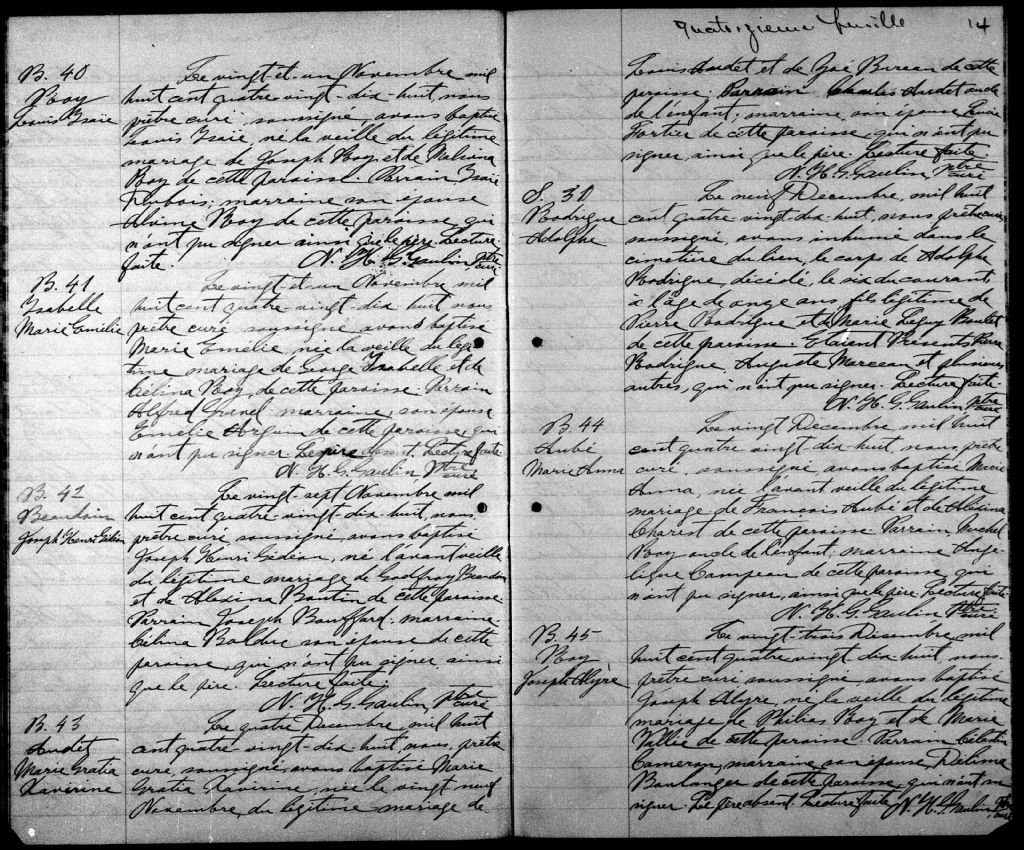 B. 40
Roy
Louis Isaie
Le vingt-et-un Novembre mil
huit cent quatre-vingt-dix-huit, nous
prêtre curé soussigné, avons baptisé
Louis Isaie, né la veille du légitime
mariage de Joseph Roy et de Malvina
Roy de cette paroisse. Parrain Isaie
Dubois; marraine son épouse
Alvine Roy de cette paroisse, qui
n'ont pu signer ainsi que le père. Lecture
faite. N. H. G. Gaulin, Ptre Curé
B. 41
Isabelle
Marie Emélie
Le vingt-et-un Novembre mil
huit cent quatre-vingt-dix-huit nous
prêtre curé soussigné avons baptisé
Marie Emélie, née la veille du légi-
time mariage de George Isabelle et de
Célina Roy, de cette paroisse. Parrain
Alfred marraine, son épouse
Emélie de cette paroisse, qui
n'ont pu signer. Le père absent. Lecture faite
N. H. G. Gaulin, Ptre Curé
B. 42
Beaudoin
Joseph Henri Gédéon
Le vingt-sept Novembre mil
huit cent quatre-vingt-dix-huit, nous
prêtre curé soussigné, avons baptisé
Joseph Henri Gédéon, né l'avant veille
du légitime mariage de Godfroy Beaudoin
et de Alexina Boutin de cette paroisse
Parrain Joseph Bouffard, marraine
Célina Bolduc son épouse de cette
paroisse, qui n'ont pu signer ainsi
que le père. Lecture faite.
N. H. G. Gaulin, Ptre Curé
B. 43
Audet
Marie Gratia
Xavérine
Le quatre Décembre, mil huit
cent quatre-vingt-dix-huit, nous, prêtre
curé, soussigné, avons baptisé Marie
Gratia Xavérine, née le vingt neuf
Novembre du légitime mariage de
Quatorzième feuille 14
Louis Audet et de Zoé Bureau de cette
paroisse. Parrain Charles Audet oncle
de l'enfant; marraine, son épouse Lucie
Fortier de cette paroisse, qui n'ont pu
signer, ainsi que le père. Lecture faite.
N. H. G. Gaulin, Ptre Curé
S. 30
Rodrigue
Adolphe
Le neuf Décembre, mil huit
cent quatre-vingt dix-huit, nous prêtre curé
soussigné, avons inhumé dans le
cimetière du lieu, le corps de Adolphe
Rodrigue, décédé, le six du courant
à l'âge de onze ans, fils légitime de
Pierre Rodrigue et de Marie Boulet
de cette paroisse. Etaient Présents Pierre
Rodrigue, Auguste Marceau et plusieurs
autres, qui n'ont pu signer. Lecture faite.
N. H. G. Gaulin, Ptre Curé
B. 44
Aubé
Marie Anna
Le vingt Décembre mil huit
cent quatre-vingt-dix-huit, nous, prêtre
curé, soussigné avons baptisé Marie
Anna, née l'avant veille du légitime
mariage de François Aubé et de Albina
Charest de cette paroisse. Parrain, Michel
Roy oncle de l'enfant; marraine Angé-
lique Campeau de cette paroisse, qui
n'ont pu signer, ainsi que le père. Lecture faite.
N. H. G. Gaulin Ptre Curé
B. 45
Roy
Joseph Alyre
Le vingt-trois Décembre mil
huit cent quatre vingt dix-huit, nous
prêtre curé soussigné, avons baptisé
Joseph Alyre, né la veille du légitime
mariage de Philias Roy et de Marie
Vallée de cette paroisse. Parrain Célestin
Cameron, marraine, son épouse Delima
Boulanger de cette paroisse, qui n'ont su
signer. Le père absent. Lecture faite N. H. G. Gaulin, Ptre Curé